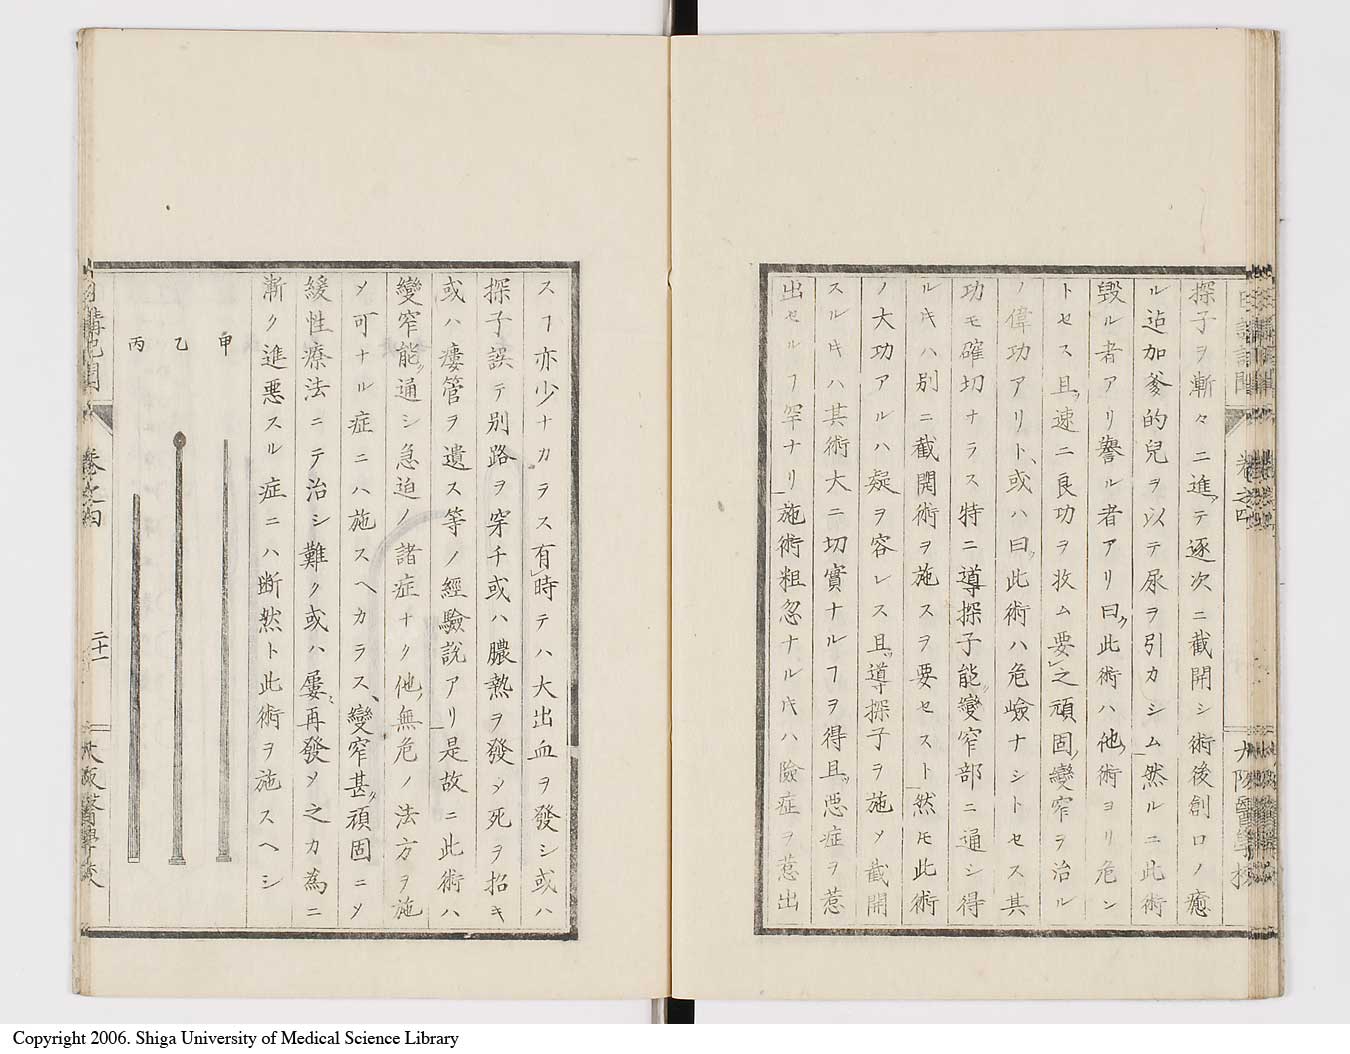 探子ヲ漸々ニ進メテ逐次ニ截開シ術後創口ノ癒
ル迠加爹的兒ヲ以テ尿ヲ引カシム然ルニ此術
毀ル者アリ譽ル者アリ曰ク此術ハ他ノ術ヨリ危シ
トセス且ツ速ニ良功ヲ收ム要之頑固ノ變窄ヲ治ル
ノ偉功アリト、或ハ曰ク此術ハ危嶮ナシトセス其
功モ確切ナラス特ニ導探子能ク變窄部ニ通シ得
ルキハ別ニ截開術ヲ施スヲ要セスト然モ此術
ノ大功アルハ疑ヲ容レス且ツ導探子ヲ施メ截開
スルキハ其術大ニ切實ナルヿヲ得且ツ悪症ヲ惹
出セルヿ罕ナリ施術粗忽ナルキハ險症ヲ惹出
スヿ亦少ナカラス有時テハ大出血ヲ發シ或ハ
探子誤テ別路ヲ穿チ或ハ膿熱ヲ發メ死ヲ招キ
或ハ瘻管ヲ遺ス等ノ經驗說アリ是故ニ此術ハ
變窄能ク通シ急迫ノ諸症ナク他ノ無危ノ法方ヲ施
メ可ナル症ニハ施スヘカラス、變窄甚タ頑固ニメ
緩性療法ニテ治シ難ク或ハ屢々再發メ之カ為ニ
漸ク進悪スル症ニハ断然ト此術ヲ施スヘシ
甲
乙
丙
日講記聞
卷之四
二十一
大阪醫學校
日講記聞
卷之四
大阪醫學校
Copyright 2006. Shiga University of Medical Science Library